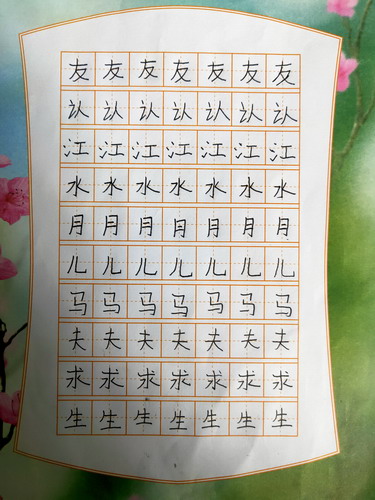 友友友友友友友
认认认认认认认
江江江江江江江
水水水水水水水
月月月月月月月
儿儿儿儿儿儿儿
马马马马马马马
夫夫夫夫夫夫夫
求求求求求求求
生生生生生生生